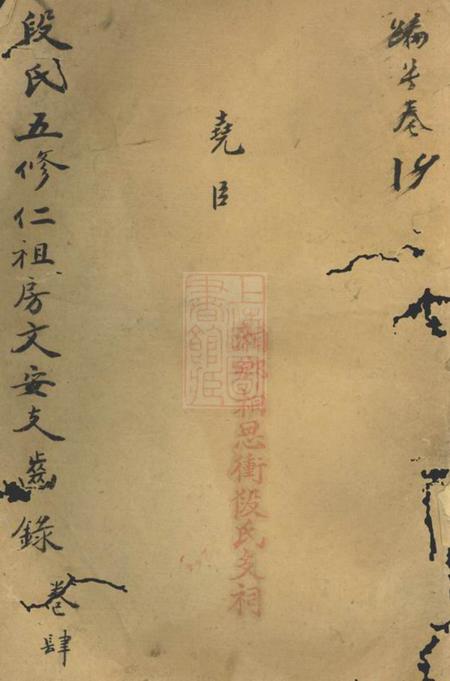 堯臣
上海圖
書館藏
湘鄉相思衝段氏支祠
段氏五修仁祖房文安支齒錄 卷肆